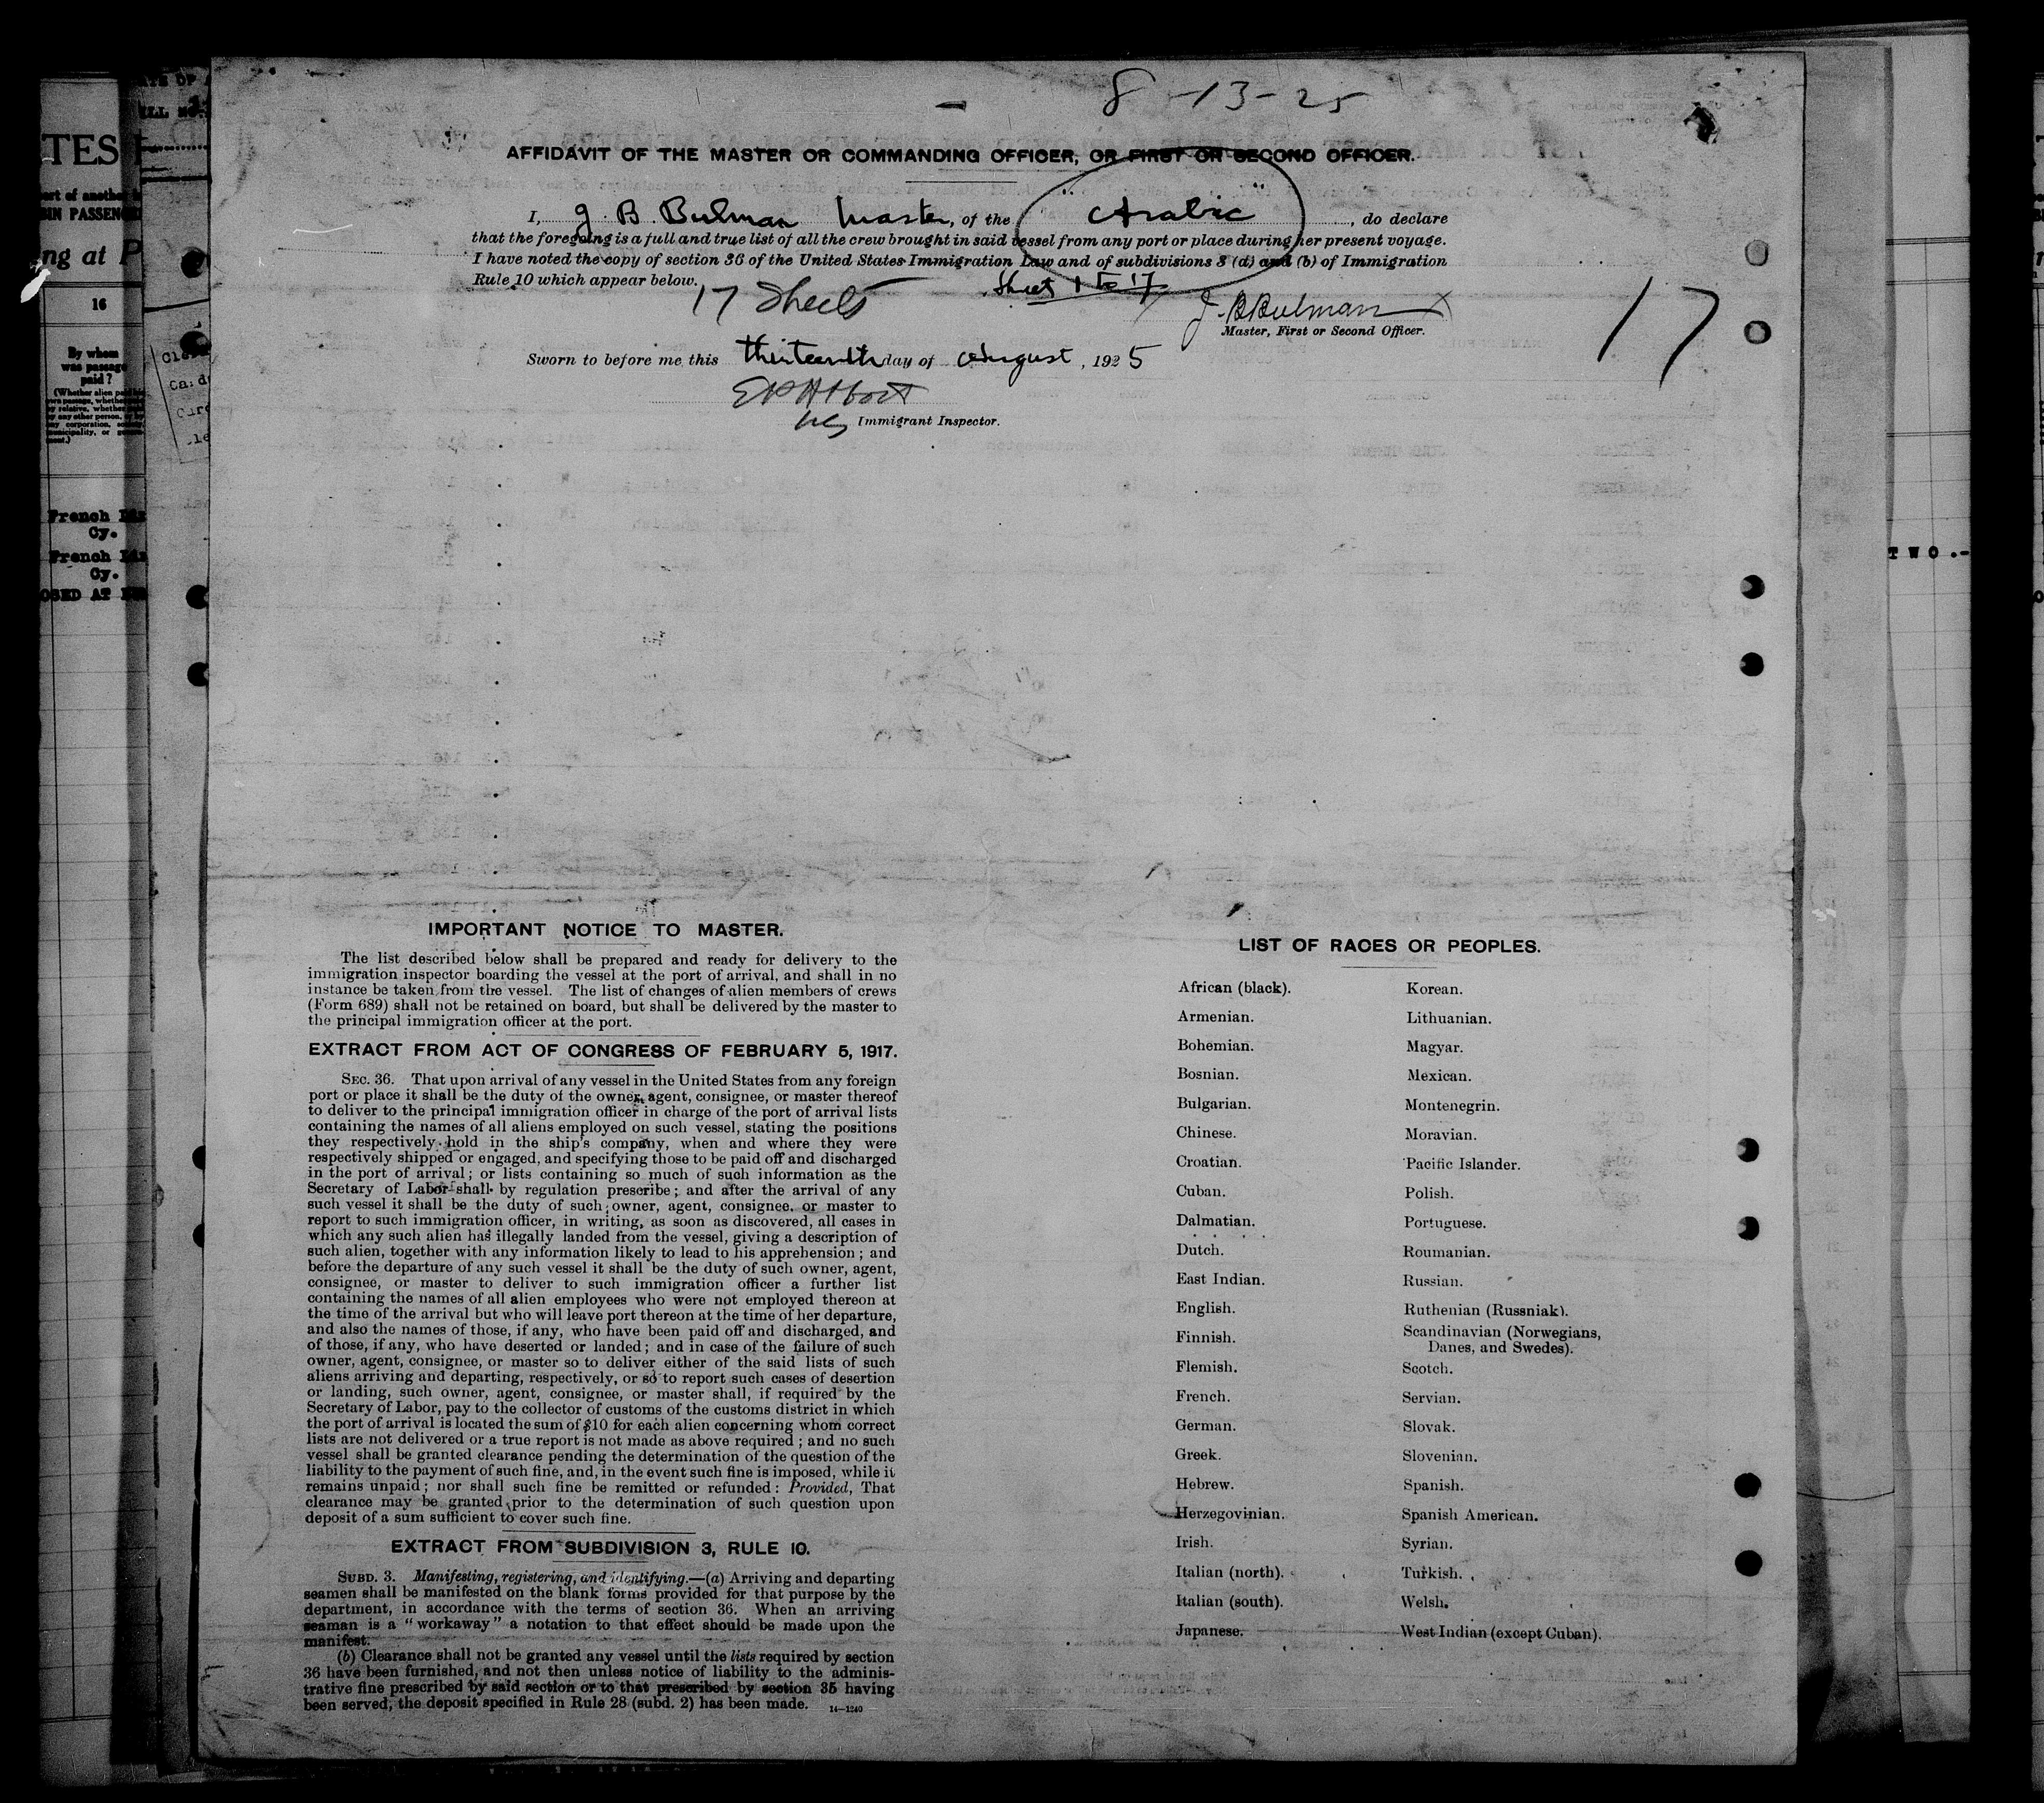 8-13-25
AFFIDAVIT OF THE MASTER OR COMMANDING OFFICER, OR FIRST OR SECOND OFFICER.
I, J. B. Bulman Master, of the "Arabic", do declare
that the foregoing is a full and true list of all the crew brought in said vessel from any port or place during her present voyage.
I have noted the copy of section 36 of the United States Immigration Law and of subdivisions 3 (d) and (b) of Immigration
Rule 10 which appear below.
17 Sheets
Sheet 1 to 17
J. B Bulman
Master, First or Second Officer.
17
Sworn to before me this thirteenth day of August, 1925
Immigrant Inspector.
IMPORTANT NOTICE TO MASTER.
The list described below shall be prepared and ready for delivery to the
immigration inspector boarding the vessel at the port of arrival, and shall in no
instance be taken from the vessel. The list of changes of alien members of crews
(Form 689) shall not be retained on board, but shall be delivered by the master to
the principal immigration officer at the port.
EXTRACT FROM ACT OF CONGRESS OF FEBRUARY 5, 1917.
SEC. 36. That upon arrival of any vessel in the United States from any foreign
port or place it shall be the duty of the owner, agent, consignee, or master thereof
to deliver to the principal immigration officer in charge of the port of arrival lists
containing the names of all aliens employed on such vessel, stating the positions
they respectively hold in the ship's company, when and where they were
respectively shipped or engaged, and specifying those to be paid off and discharged
in the port of arrival; or lists containing so much of such information as the
Secretary of Labor shall by regulation prescribe; and after the arrival of any
such vessel it shall be the duty of such owner, agent, consignee, or master to
report to such immigration officer, in writing, as soon as discovered, all cases in
which any such alien has illegally landed from the vessel, giving a description of
such alien, together with any information likely to lead to his apprehension; and
before the departure of any such vessel it shall be the duty of such owner, agent,
consignee, or master to deliver to such immigration officer a further list
containing the names of all alien employees who were not employed thereon at
the time of the arrival but who will leave port thereon at the time of her departure,
and also the names of those, if any, who have been paid off and discharged, and
of those, if any, who have deserted or landed; and in case of the failure of such
owner, agent, consignee, or master so to deliver either of the said lists of such
aliens arriving and departing, respectively, or so to report such cases of desertion
or landing, such owner, agent, consignee, or master shall, if required by the
Secretary of Labor, pay to the collector of customs of the customs district in which
the port of arrival is located the sum of $10 for each alien concerning whom correct
lists are not delivered or a true report is not made as above required; and no such
vessel shall be granted clearance pending the determination of the question of the
liability to the payment of such fine, and, in the event such fine is imposed, while it
remains unpaid; nor shall such fine be remitted or refunded: Provided, That
clearance may be granted prior to the determination of such question upon
deposit of a sum sufficient to cover such fine.
EXTRACT FROM SUBDIVISION 3, RULE 10.
SUBD. 3. Manifesting, registering, and identifying.—(a) Arriving and departing
seamen shall be manifested on the blank forms provided for that purpose by the
department, in accordance with the terms of section 36. When an arriving
seaman is a "workaway" a notation to that effect should be made upon the
manifest.
(b) Clearance shall not be granted any vessel until the lists required by section
36 have been furnished, and not then unless notice of liability to the adminis-
trative fine prescribed by said section or to that prescribed by section 35 having
been served, the deposit specified in Rule 28 (subd. 2) has been made. 14—1240
LIST OF RACES OR PEOPLES.
African (black).
Armenian.
Bohemian.
Bosnian.
Bulgarian.
Chinese.
Croatian.
Cuban.
Dalmatian.
Dutch.
East Indian.
English.
Finnish.
Flemish.
French.
German.
Greek.
Hebrew.
Herzegovinian.
Irish.
Italian (north).
Italian (south).
Japanese.
Korean.
Lithuanian.
Magyar.
Mexican.
Montenegrin.
Moravian.
Pacific Islander.
Polish.
Portuguese.
Roumanian.
Russian.
Ruthenian (Russniak).
Scandinavian (Norwegians,
Danes, and Swedes).
Scotch.
Servian.
Slovak.
Slovenian.
Spanish.
Spanish American.
Syrian.
Turkish.
Welsh.
West Indian (except Cuban).
16
By whom
was passage
paid?
French
Cy.
French
Cy.
TWO.-